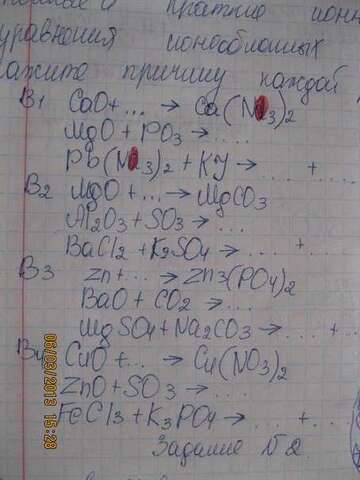 и краткие ион
уравнения ионообменных
кажите причину каждой
В1 CaO + ... → Ca(NO3)2
MgO + PO3 → ....
Pb(NO3)2 + KJ → .... + ...
В2 MgO + ... → MgCO3
Al2O3 + SO3 → ....
BaCl2 + K2SO4 → .... + ...
В3 Zn + ... → Zn3(PO4)2
BaO + CO2 → ....
MgSO4 + Na2CO3 → .... + ...
В4 CuO + ... → Cu(NO3)2
ZnO + SO3 → ....
FeCl3 + K3PO4 → .... + ...
Задание №2.
06/03/2013 15:28